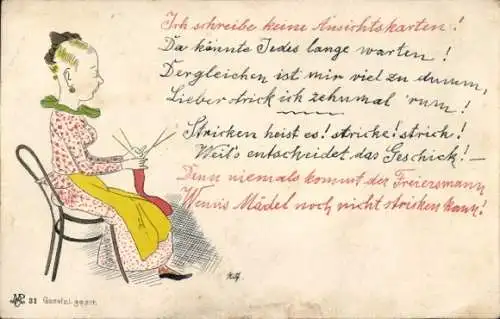 Ich schreibe keine Ansichtskarten!
Da könnte Jedes lange warten!
Dergleichen ist mir viel zu dumm,
Lieber strick ich zehnmal 'rum!
Stricken heist es! stricke! strich!
Weil's entscheidet das Geschick! –
Denn niemals kommt der Freiersmann
Wenns Mädel noch nicht stricken kann!
31 Gesetzl. gesch.